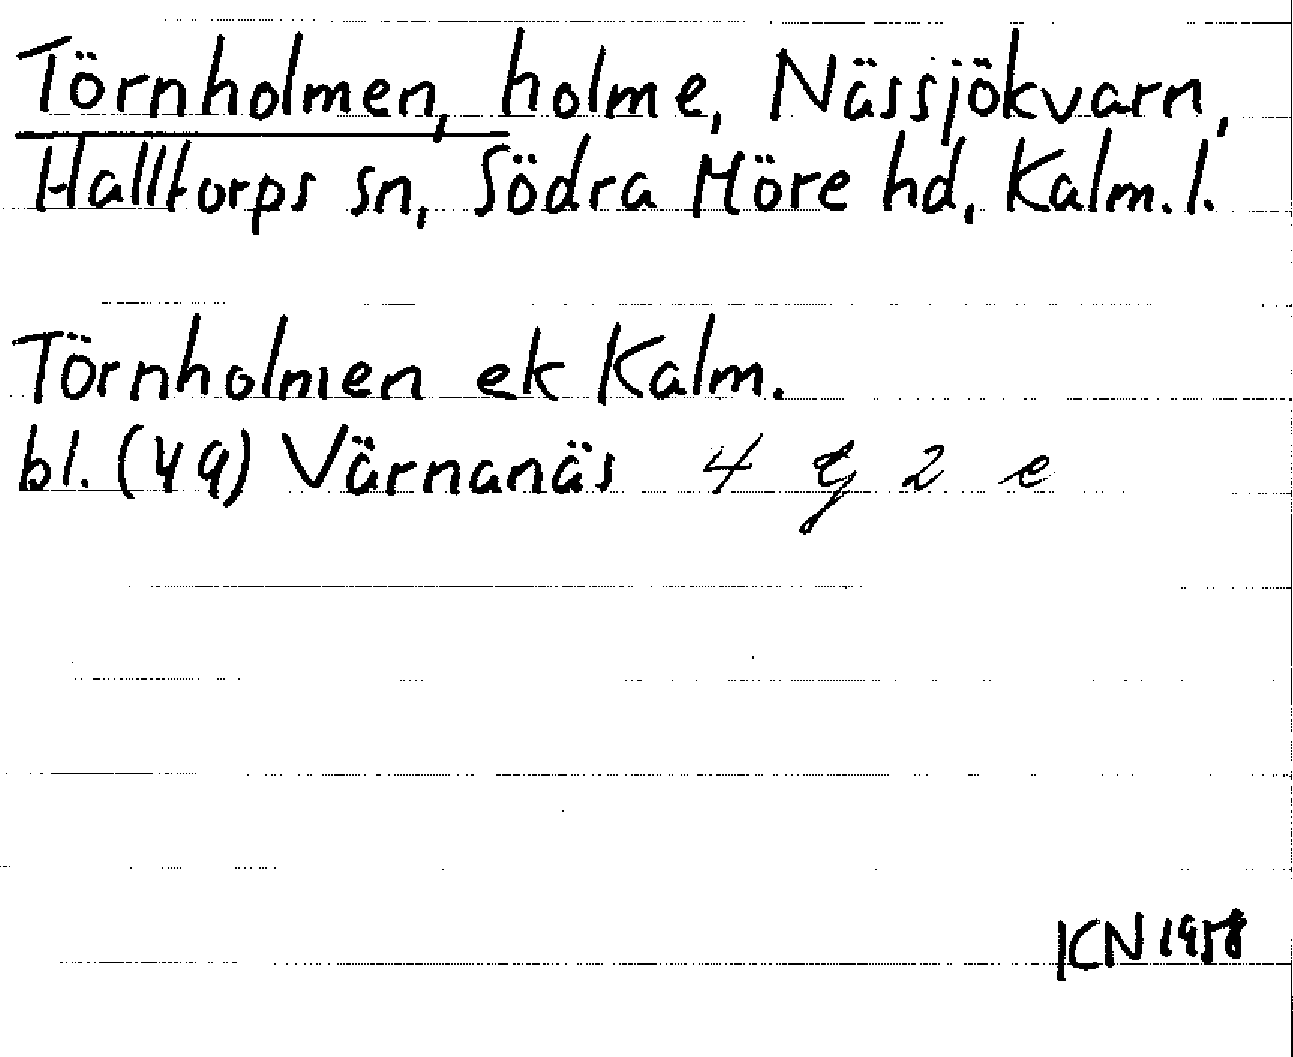 Törnholmen, holme, Nässjökvarn,
Halltorps sn, Södra Möre hd, Kalm. l.
Törnholmen ek Kalm.
bl. (49) Värnanäs 4 g 2 e
KCN 1958